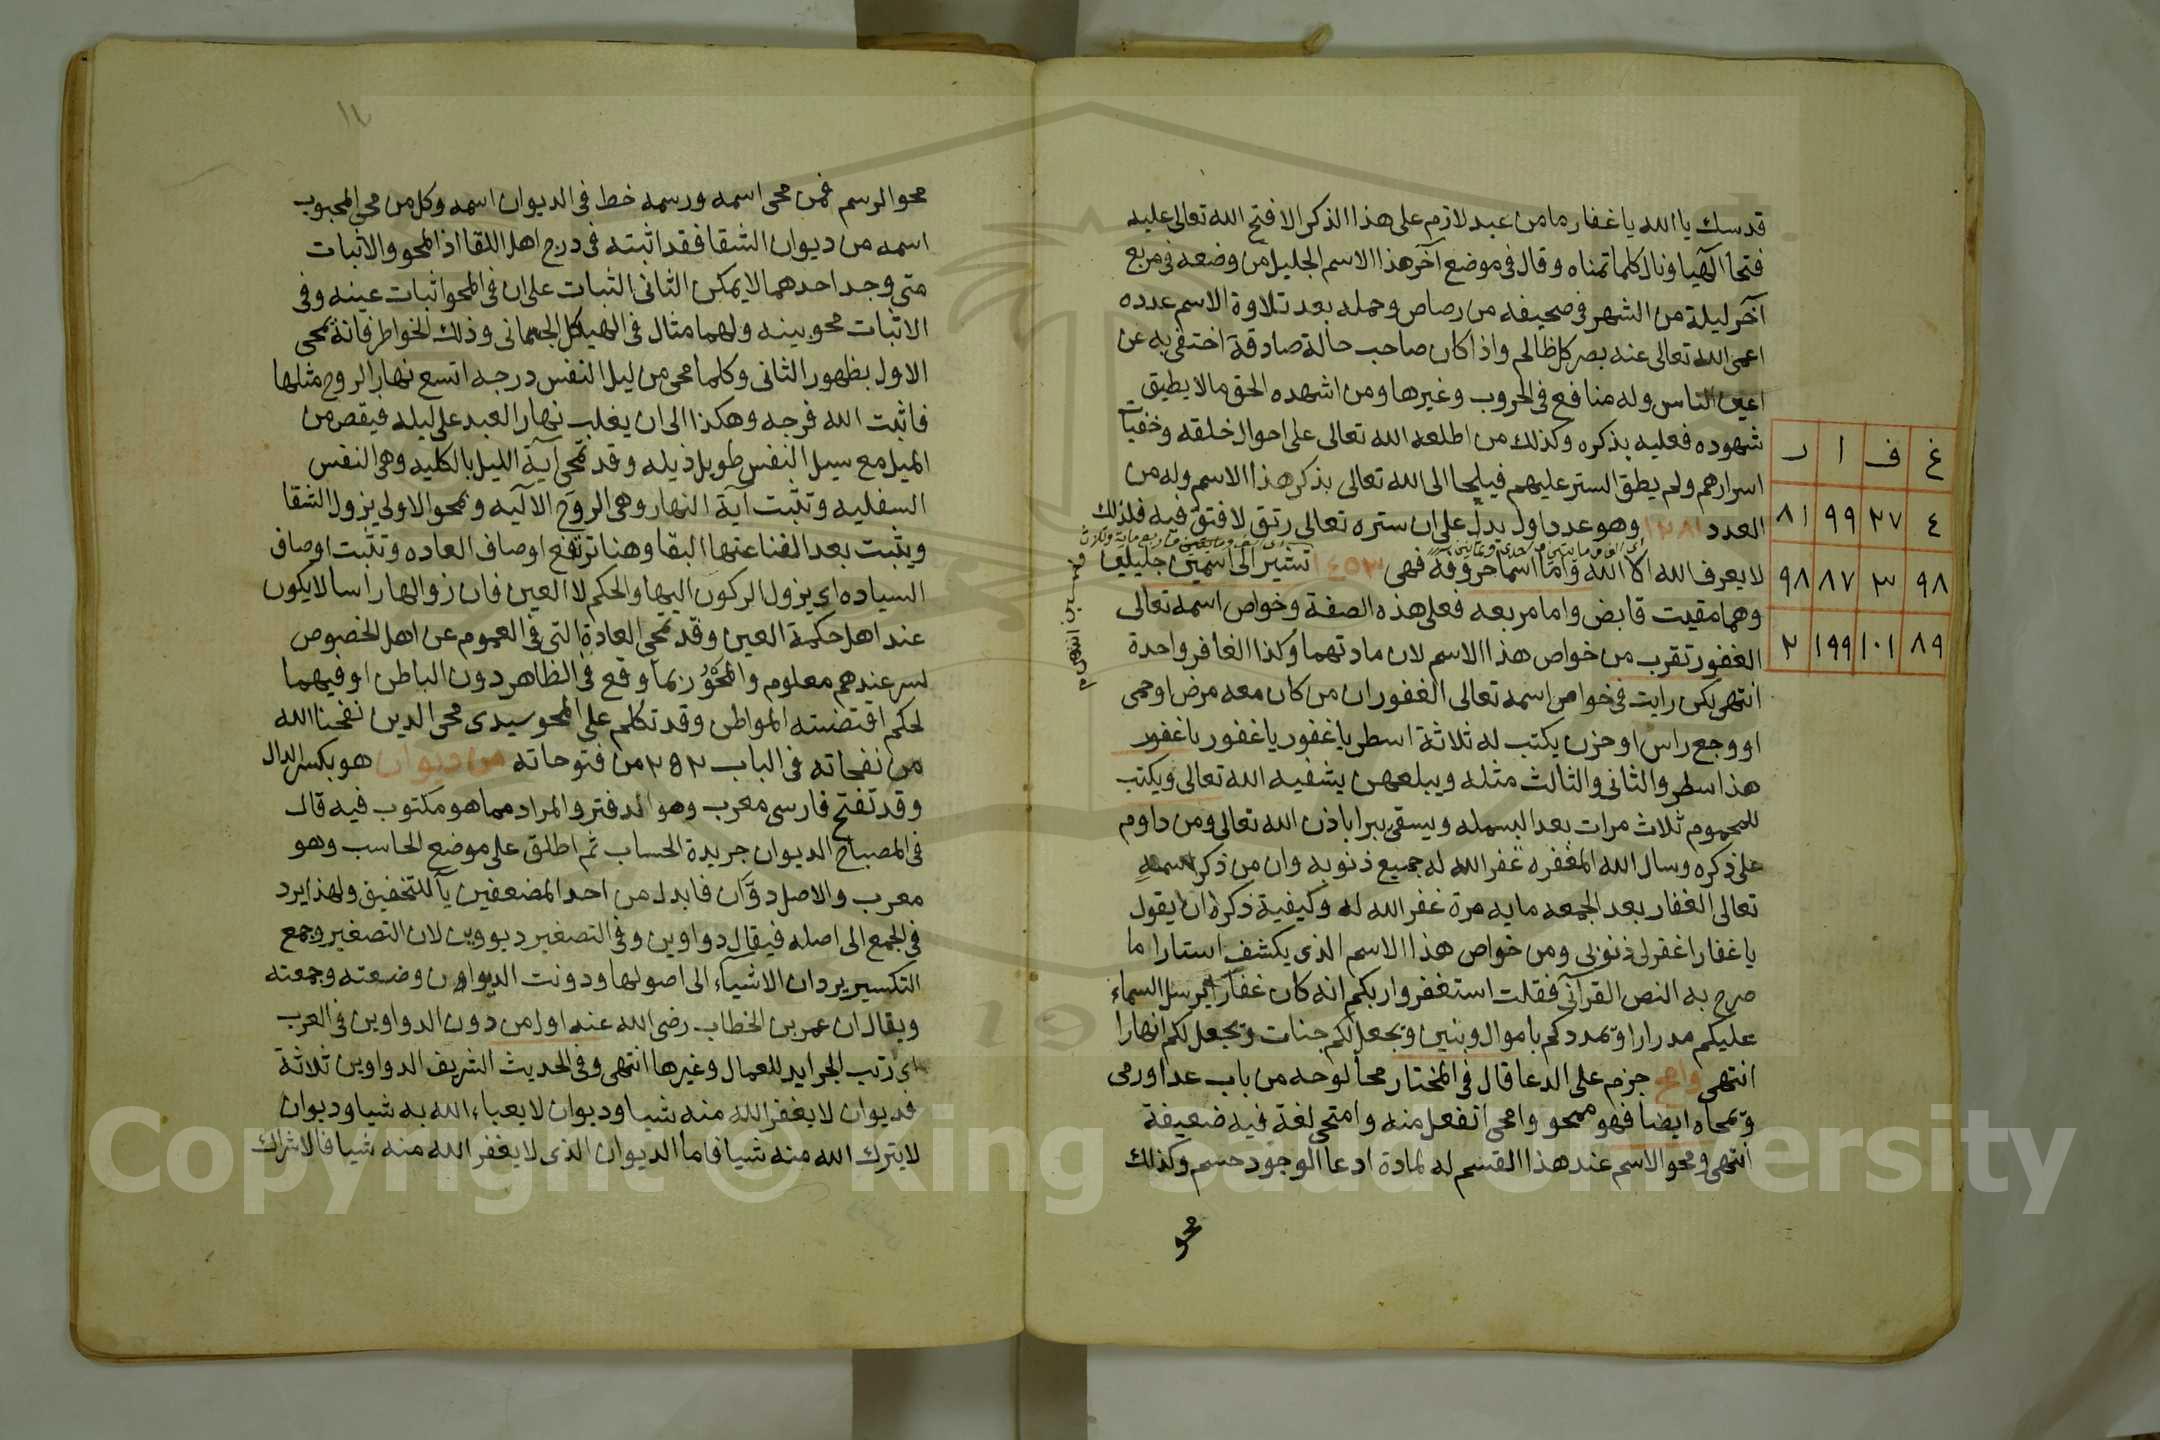 قدسك يا الله يا غفار ما من عبد لازم على هذا الذكر الا فتح الله تعالى عليه
فتحا الهيا ونال كلما تمناه وقال في موضع آخر هذا الاسم الجليل من وضعه في مربع
آخر ليلة من الشهر في صحيفه من رصاص وحمله بعد تلاوة الاسم عدده
اعمى الله تعالى عنه بصر كل ظالم واذا كان صاحب حالة صادقة اختفى به عن
اعين الناس وله منافع في الحروب وغيرها ومن اشهده الحق مالا يطيق
شهوده فعليه بذكره وكذلك من اطلعه الله تعالى على احوال خلقه وخفيات
اسرارهم ولم يطق الستر عليهم فيلجا الى الله تعالى بذكر هذا الاسم وله من
العدد ١٢٨١ وهو عدد اول يدل على ان ستره تعالى رتق لا فتق فيه فلذلك
لا يعرف الله الا الله واما اسما حروفه فهي تشير الى اسمين جليلين
وهما مقيت قابض واما مربعه فعلى هذه الصفة وخواص اسمه تعالى
الغفور تقرب من خواص هذا الاسم لان مادتهما وكذا الغافر واحدة
انتهى لكن رايت في خواص اسمه تعالى الغفور ان من كان معه مرض او حمى
او وجع راس او حزن يكتب له ثلاثة اسطر يا غفور يا غفور يا غفور
هذا سطر والثاني والثالث مثله ويبلعهن يشفيه الله تعالى ويكتب
للمحموم ثلاث مرات بعد البسمله ويسقى يبرا باذن الله تعالى ومن داوم
على ذكره وسال الله المغفره غفر الله له جميع ذنوبه وان من ذكر اسمه
تعالى الغفار بعد الجمعه مايه مرة غفر الله له وكيفية ذكره ان يقول
يا غفار اغفر لي ذنوبي ومن خواص هذا الاسم الذي يكشف استارا ما
صرح به النص القرآني فقلت استغفروا ربكم انه كان غفارا يرسل السماء
عليكم مدرارا ويمددكم باموال وبنين ويجعل لكم جنات ويجعل لكم انهارا
انتهى وامح جزم على الدعا قال في المختار محا لوحه من باب عدا ورمى
ويمحاه ايضا فهو ممحو وامحى انفعل منه وامتحى لغة فيه ضعيفة
انتهى ومحو الاسم عند هذا القسم له لمادة ادعا الوجود حسم وكذلك
محو
غ ف ا ر
٤ ٢٧ ٩٩ ٨١
٩٨ ٣ ٨٧ ٩٨
٨٩ ١٠١ ١٩٩ ٢
محو الرسم فمن محى اسمه ورسمه خط في الديوان اسمه وكل من محى المحبوب
اسمه من ديوان الشقا فقد اثبته في درج اهل اللقا اذ المحو والاثبات
متى وجد احدهما لا يمكن الثاني الثبات على ان في المحو اثبات عينه وفي
الاثبات محو بينه ولهما مثال في الهيكل الجثماني وذلك الخواطر فانه يمحى
الاول بظهور الثاني وكلما محى من ليل النفس درجه اتسع نهار الروح مثلها
فاثبت الله فرجه وهكذا الى ان يغلب نهار العبد على ليله فيقصر من
الميل مع سيل النفس طويل ذيله وقد تمحى آية الليل بالكليه وهي النفس
السفليه وتثبت آية النهار وهي الروح الالهيه وبمحو الاولى يزول الشقا
ويثبت بعد الفنا عنها البقا وهنا ترتفع اوصاف العاده وتثبت اوصاف
السياده اي يزول الركون اليها والحكم لا العين فان زوالها راسا لا يكون
عند اهل حكمة العين وقد تمحى العادة التي في العموم عن اهل الخصوص
لسر عندهم معلوم والمحو ربما وقع في الظاهر دون الباطن او فيهما
لحكم اقتضته المواطن وقد تكلم على المحو سيدي محي الدين نفحنا الله
من نفحاته في الباب ٢٥٢ من فتوحاته من ديوان هو بكسر الدال
وقد تفتح فارسي معرب وهو الدفتر والمراد مما هو مكتوب فيه قال
في المصباح الديوان جريدة الحساب ثم اطلق على موضع الحاسب وهو
معرب والاصل دوان فابدل من احد المضعفين يآ للتخفيف ولهذا يرد
في الجمع الى اصله فيقال دواوين وفي التصغير ديووين لان التصغير وجمع
التكسير يردان الاشياء الى اصولها ودونت الديوان وضعته وجمعته
ويقال ان عمر بن الخطاب رضي الله عنه اول من دون الدواوين في العرب
اي رتب الجرايد للعمال وغيرها انتهى وفي الحديث الشريف الدواوين ثلاثة
فديوان لا يغفر الله منه شيا وديوان لا يعباء الله به شيا وديوان
لا يترك الله منه شيا فاما الديوان الذي لا يغفر الله منه شيا فالاشراك
Copyright © King Saud University